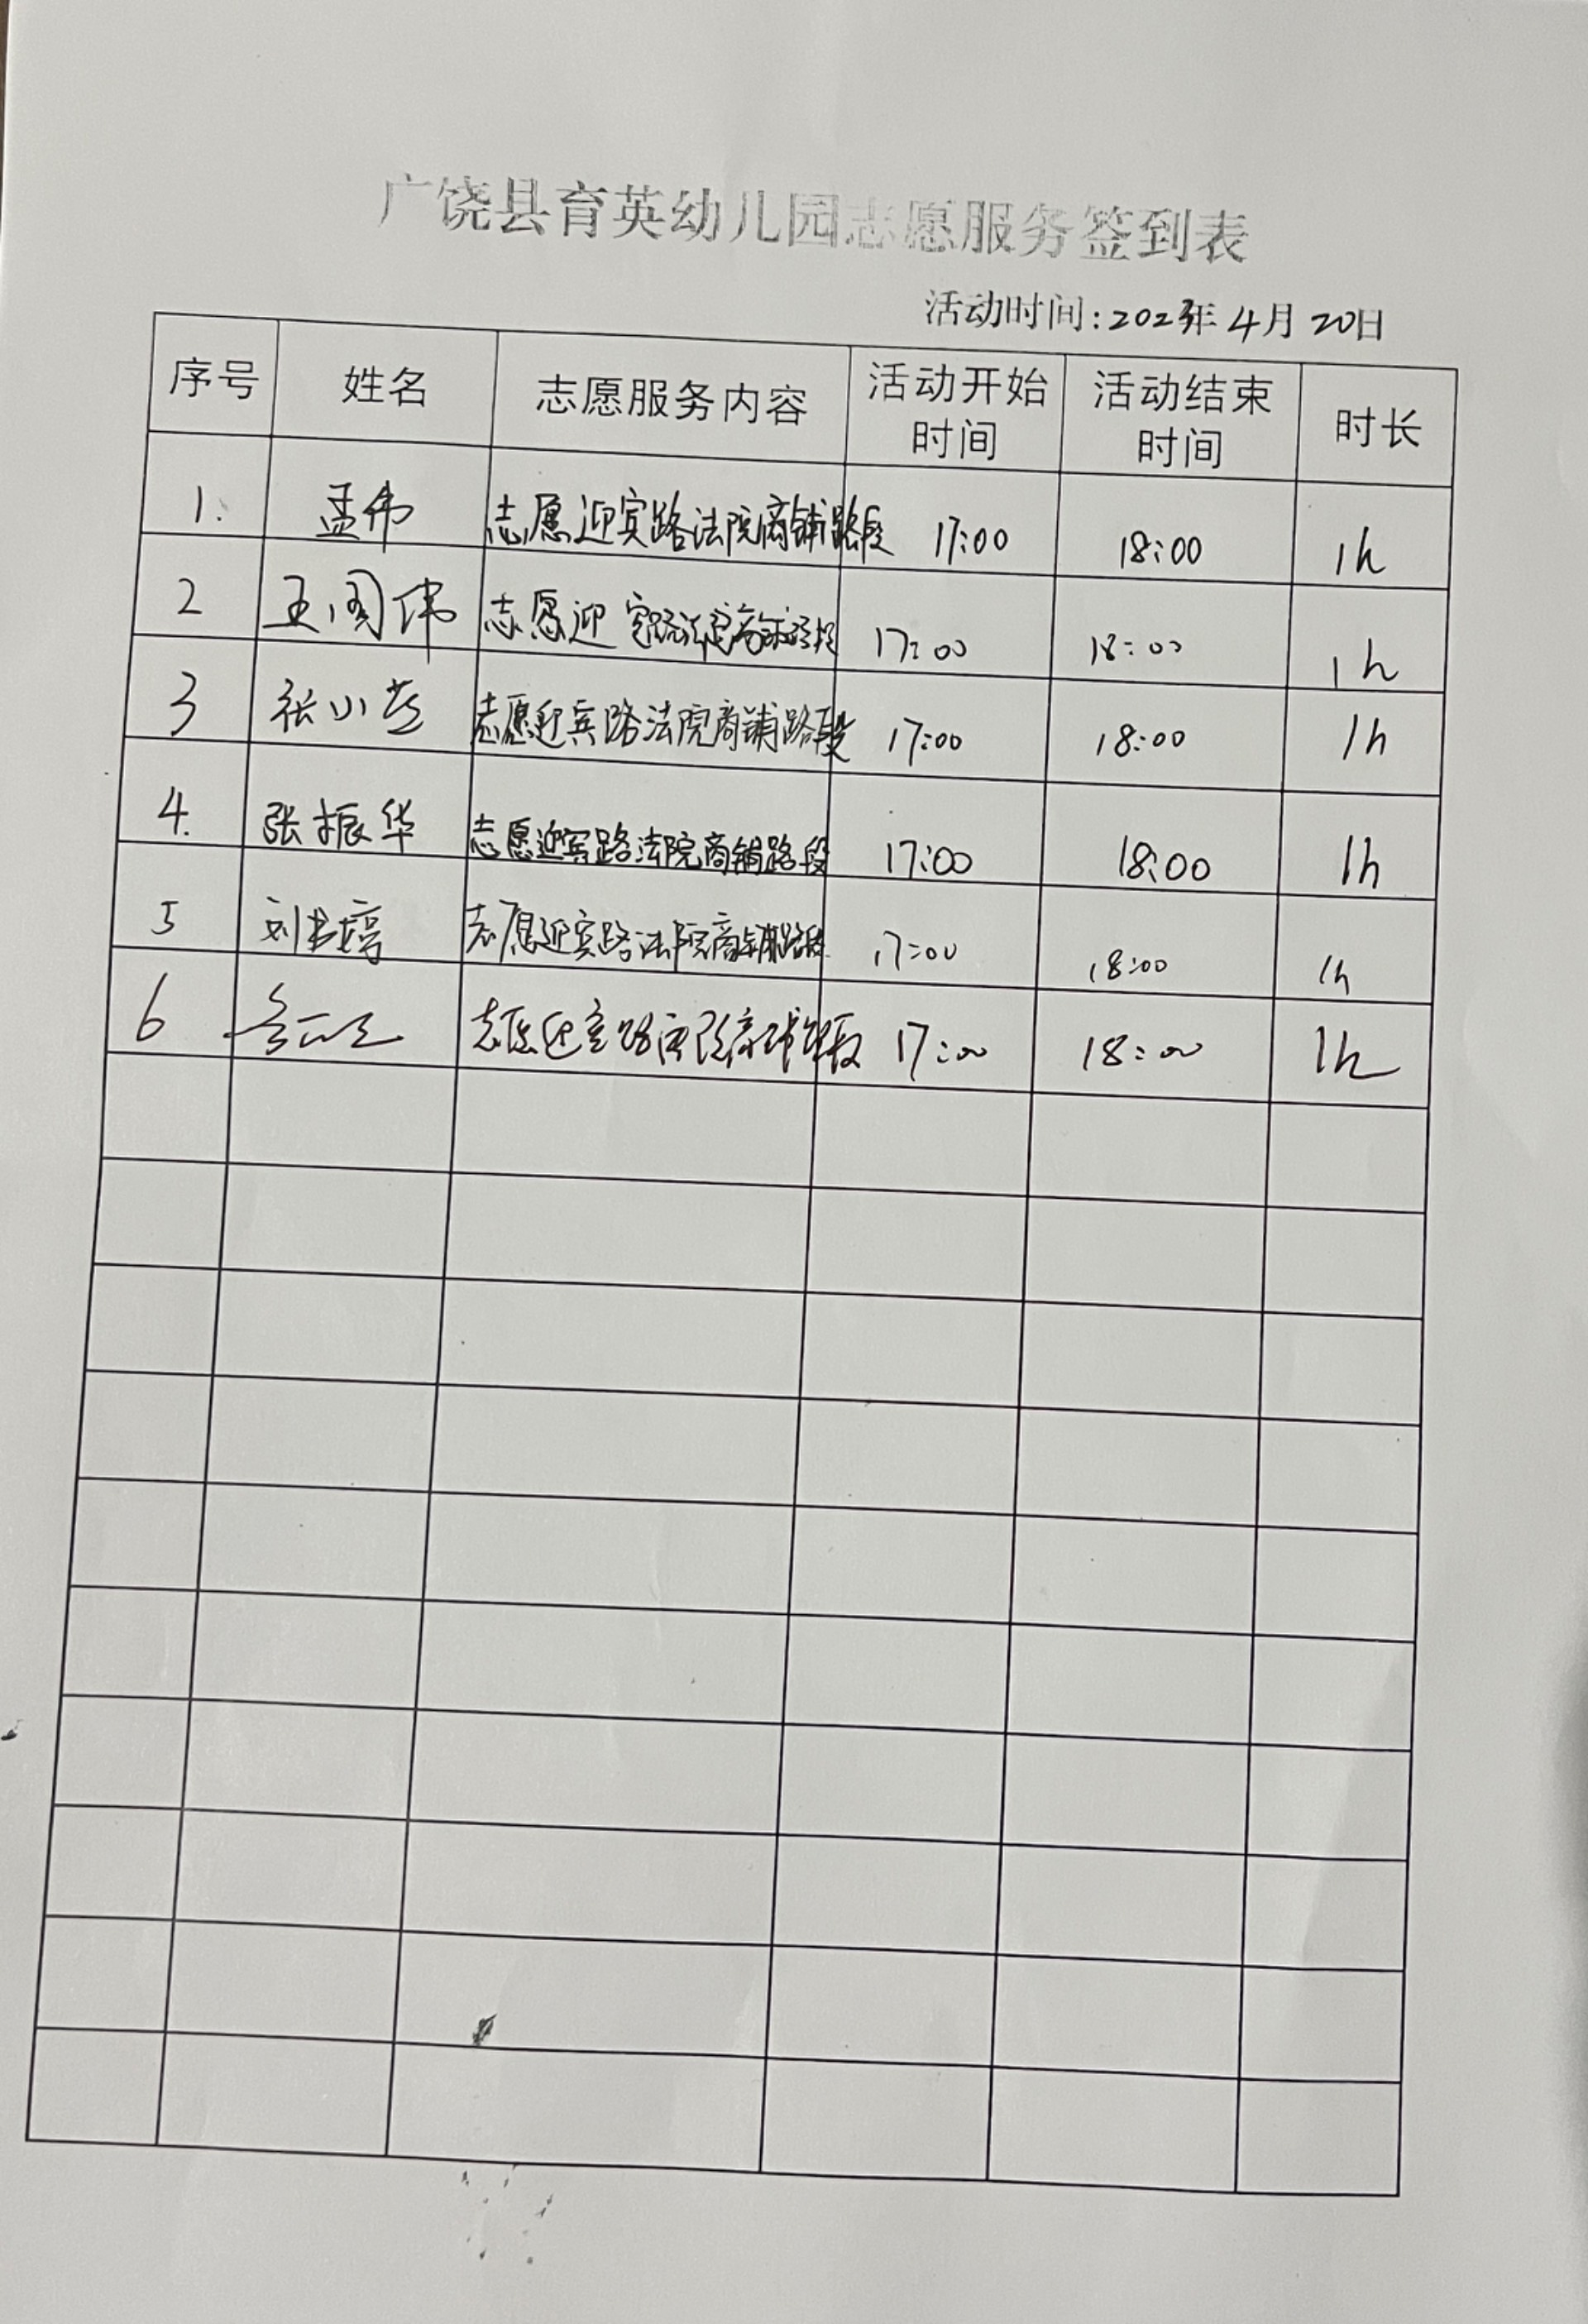 广饶县育英幼儿园志愿服务签到表
活动时间:2023年4月20日
序号 姓名 志愿服务内容 活动开始时间 活动结束时间 时长
1. 孟伟 志愿迎宾路法院商铺路段 17:00 18:00 1h
2 王周伟 志愿迎宾路法院商铺路段 17:00 18:00 1h
3 张小燕 志愿迎宾路法院商铺路段 17:00 18:00 1h
4. 张振华 志愿迎宾路法院商铺路段 17:00 18:00 1h
5 刘书婷 志愿迎宾路法院商铺路段 17:00 18:00 1h
6 志愿迎宾路法院商铺路段 17:00 18:00 1h